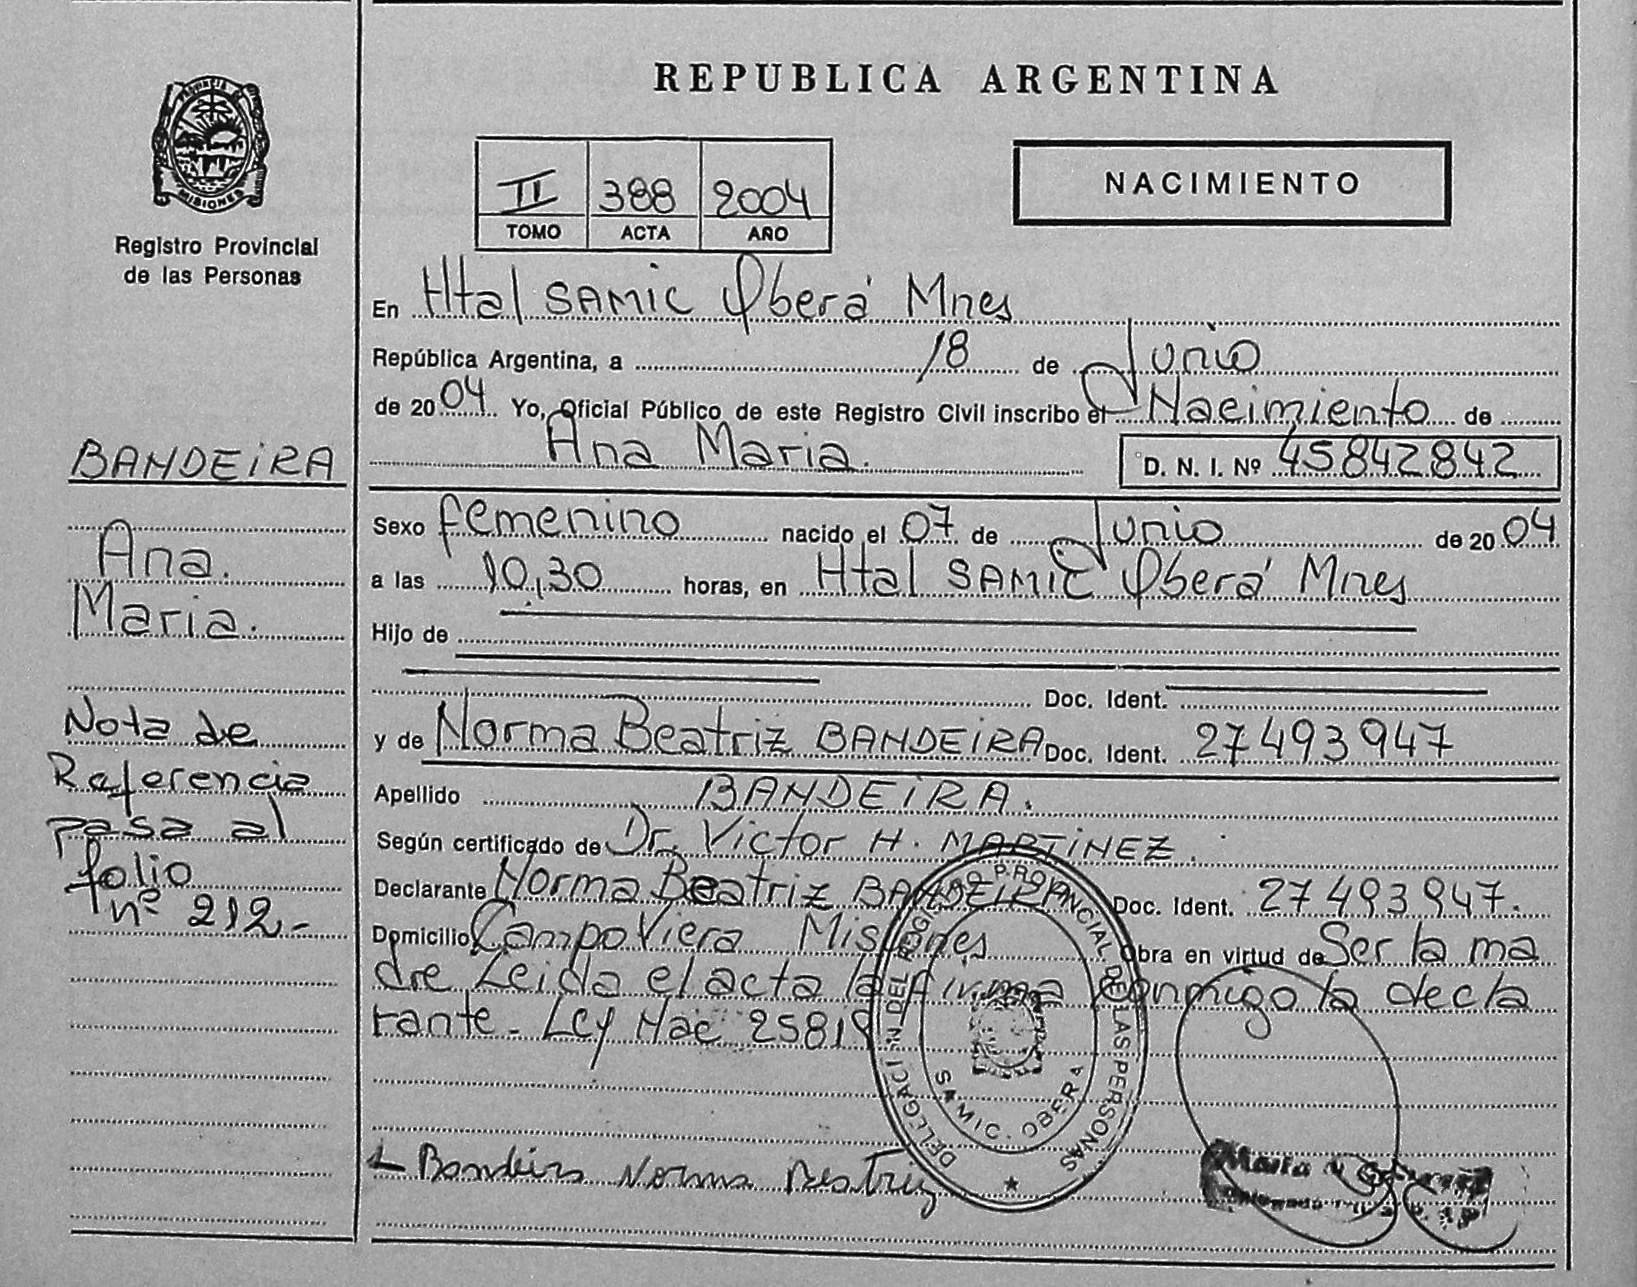 REPUBLICA ARGENTINA
PROVINCIA DE
MISIONES
Registro Provincial
de las Personas
II 388 2004
TOMO ACTA AÑO
NACIMIENTO
En Htal SAMIC Oberá Mnes
República Argentina, a 18 de Junio
de 2004 Yo, Oficial Público de este Registro Civil inscribo el Nacimiento de
Ana Maria. D. N. I. Nº 45842842
Sexo femenino nacido el 07 de Junio de 2004
a las 10,30 horas, en Htal SAMIC Oberá Mnes
Hijo de
Doc. Ident.
y de Norma Beatriz BANDEIRA Doc. Ident. 27493947
Apellido BANDEIRA.
Según certificado de Dr. Victor H. MARTINEZ.
Declarante Norma Beatriz BANDEIRA Doc. Ident. 27493947.
Domicilio Campo Viera Misiones Obra en virtud de Ser la ma
dre Leida el acta la firma conmigo la decla
rante. Ley Nac 25819
Bandeira Norma Beatriz
BANDEIRA
Ana.
Maria.
Nota de
Referencia
pasa al
folio
nº 212.-
DELEGACION DEL REGISTRO PROVINCIAL DE LAS PERSONAS
SAMIC - OBERA
Maria